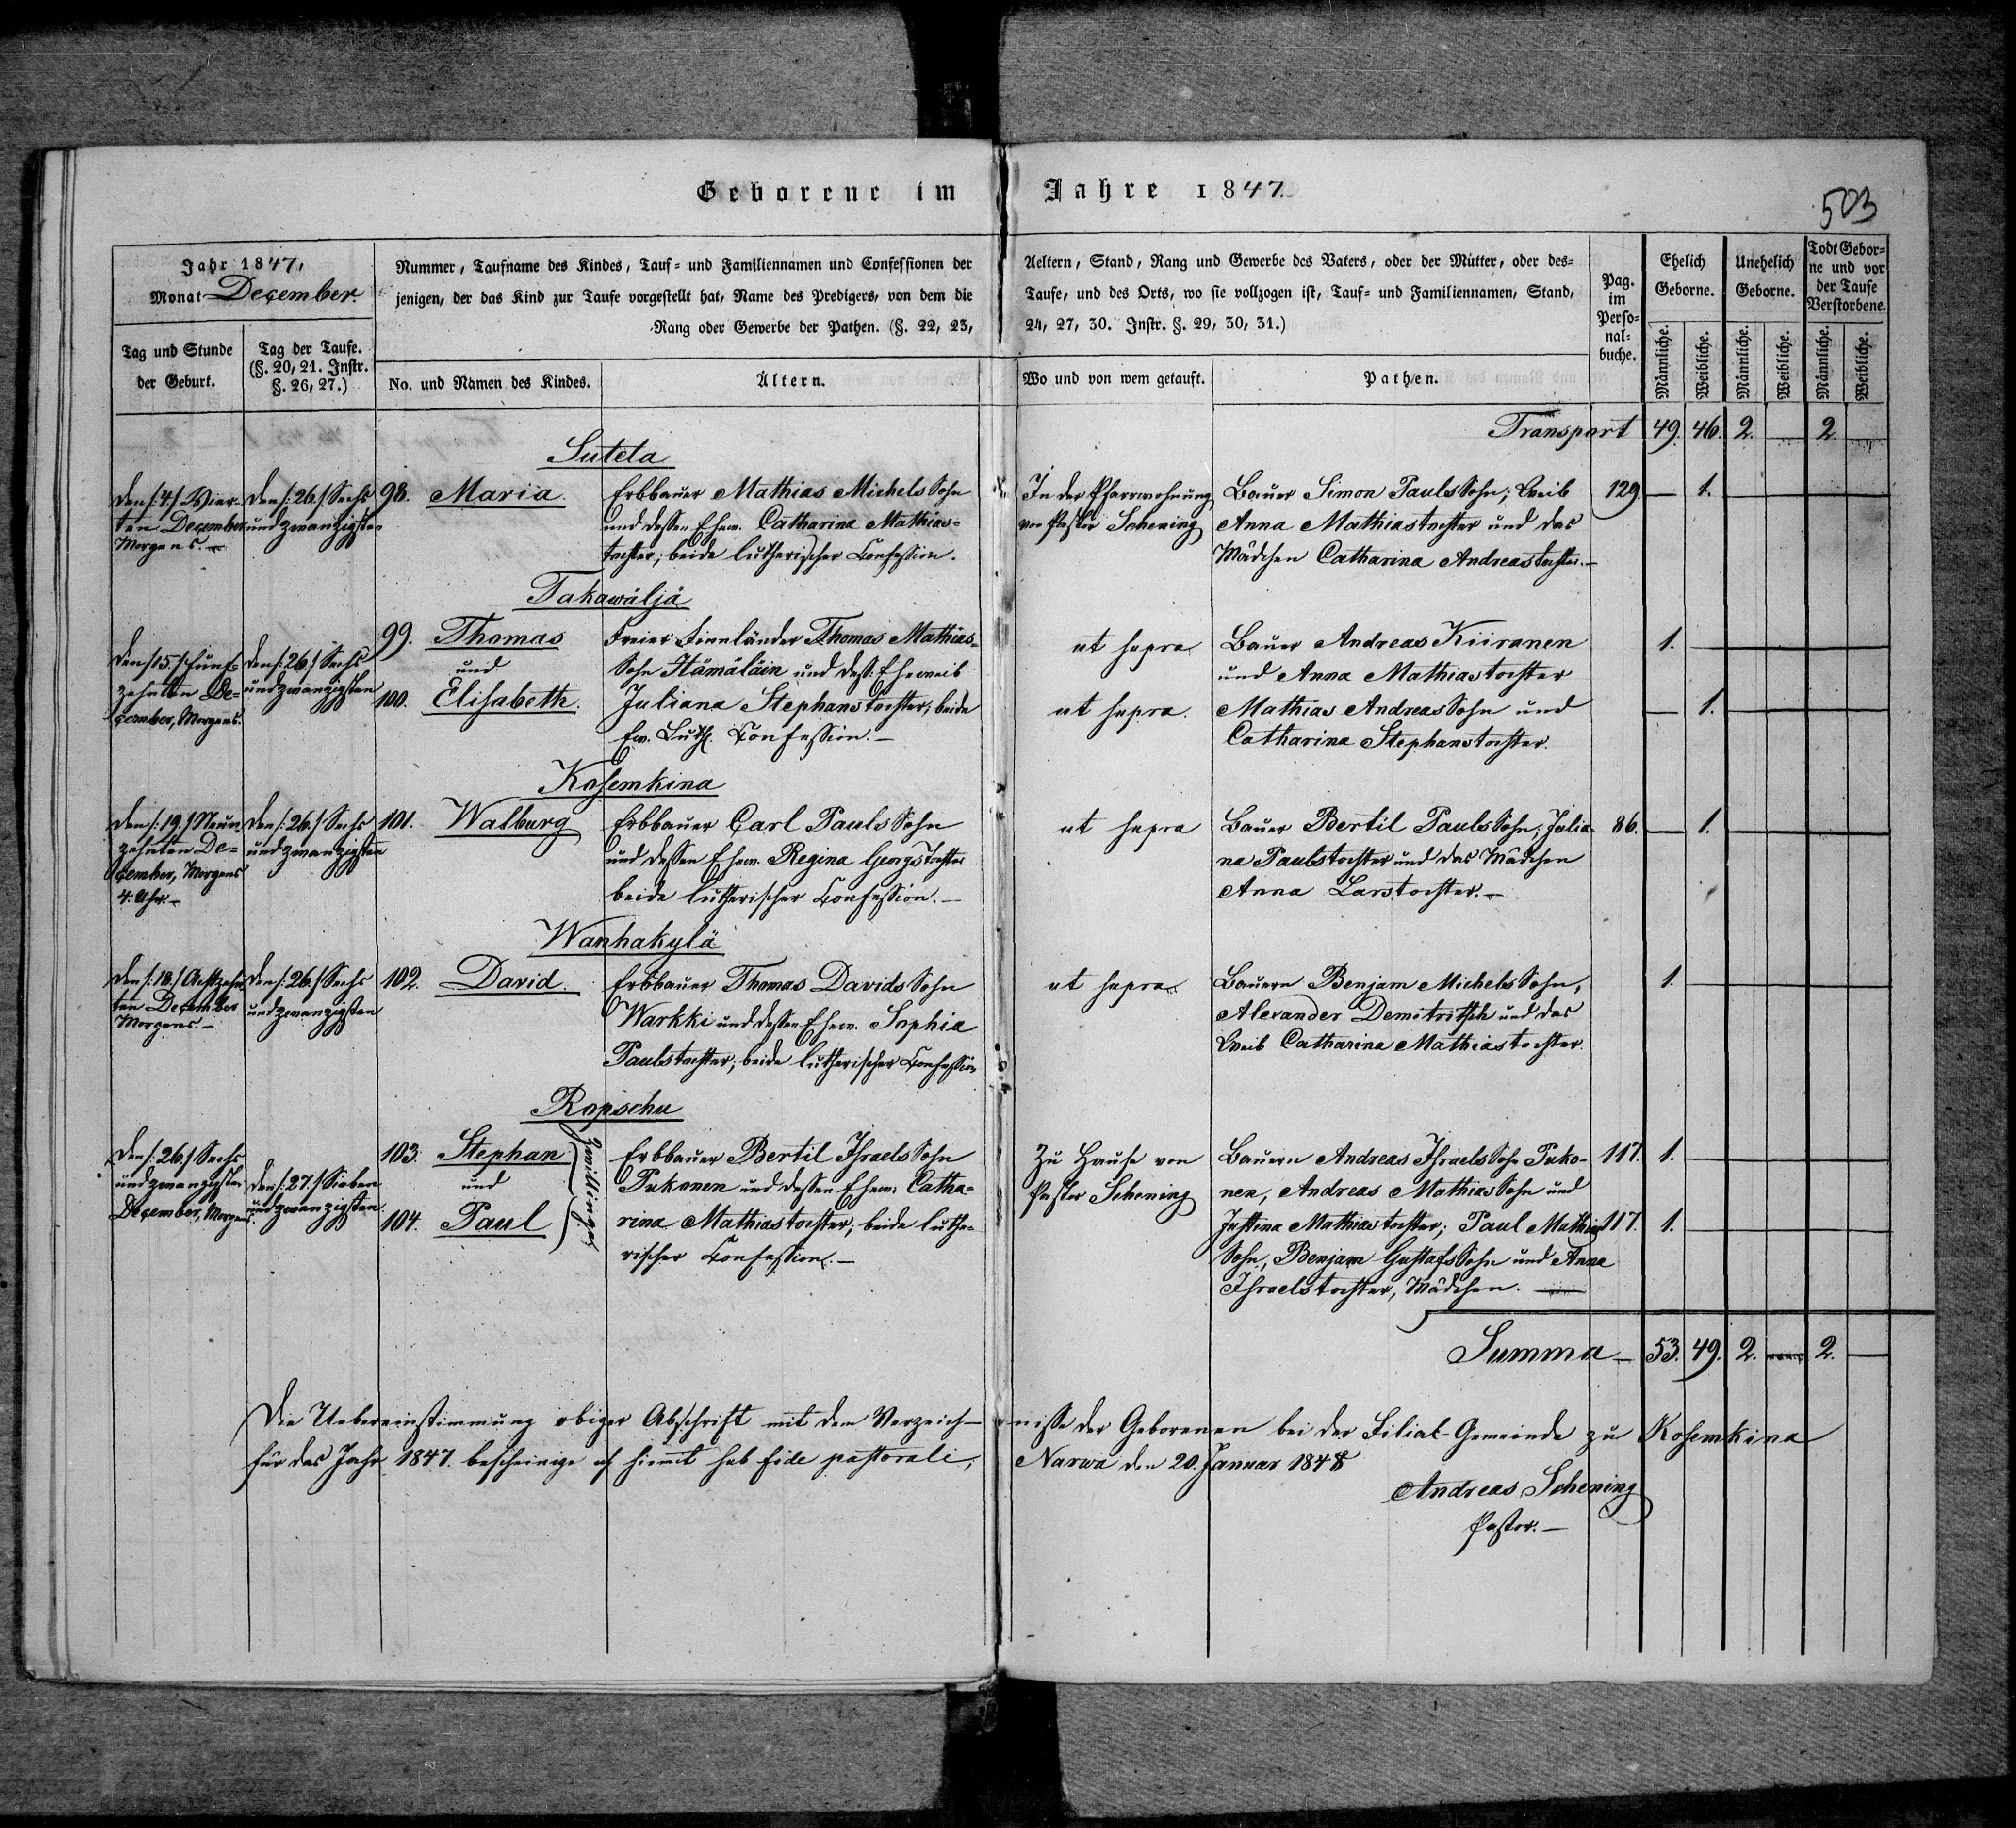 Geborene im Jahre 1847.
503
Jahr 1847,
Monat December.
Nummer, Taufname des Kindes, Tauf- und Familiennamen und Confessionen der Aeltern, Stand, Rang und Gewerbe des Vaters, oder der Mütter, oder des-
jenigen, der das Kind zur Taufe vorgestellt hat, Name des Predigers, von dem die Taufe, und des Orts, wo sie vollzogen ist, Tauf- und Familiennamen, Stand,
Rang oder Gewerbe der Pathen. (§. 22, 23, 24, 27, 30. Instr. §. 29, 30, 31.)
Pag.
im
Perso-
nal-
buche.
Ehelich
Geborne.
Unehelich
Geborne.
Todt Gebor-
ne und vor
der Taufe
Verstorbene.
Tag und Stunde
der Geburt.
Tag der Taufe.
(§. 20, 21. Instr.
§. 26, 27.)
No. und Namen des Kindes.
Ältern.
Wo und von wem getauft.
Pathen.
Männliche.
Weibliche.
Männliche.
Weibliche.
Männliche.
Weibliche.
Transport 49. 46. 2. — 2. —
Sutela
den /:4:/ Vier-
ten December
Morgens. —
den /:26:/ Sechs
und zwanzigsten
98. Maria.
Erbbauer Mathias Michels Sohn
und dessen Ehew. Catharina Mathias-
tochter; beide lutherischer Confession.
In der Pfarrwohnung
von Pastor Schening
Bauer Simon Pauls Sohn; Weib
Anna Mathiastochter und das
Mädchen Catharina Andreastochter. —
129. — 1.
Takawäljä
den /:15:/ Fünf-
zehnten De-
cember, Morgens.
den /:26:/ Sechs
und zwanzigsten
99. Thomas
und
100. Elisabeth.
Freier Finnländer Thomas Mathias-
Sohn Hämäläin und dess. Eheweib
Juliana Stephanstochter; beide
Ev. Luth. Confession. —
ut supra
ut supra.
Bauer Andreas Kiiranen
und Anna Mathiastochter
Mathias Andreas Sohn und
Catharina Stephanstochter.
1.
— 1.
Kosemkina
den /:19:/ Neun-
zehnten De-
cember, Morgens
4. Uhr. —
den /:26:/ Sechs
und zwanzigsten
101. Walburg
Erbbauer Carl Pauls Sohn
und dessen Ehew. Regina Georgstochter
beide lutherischer Confession. —
ut supra
Bauer Bertil Pauls Sohn; Julia-
na Paulstochter und das Mädchen
Anna Larstochter. —
86. — 1.
Wanhakylä
den /:18:/ Achtzehn-
ten December
Morgens. —
den /:26:/ Sechs
und zwanzigsten
102. David.
Erbbauer Thomas Davids Sohn
Warkki und dessen Ehew. Sophia
Paulstochter; beide lutherischer Confession
ut supra
Bauern Benjam Michels Sohn,
Alexander Demitritsch und das
Weib Catharina Mathiastochter.
1.
Ropschu
den /:26:/ Sechs
und zwanzigsten
December, Morgens.
den /:27:/ Sieben
und zwanzigsten.
103. Stephan
und
104. Paul
Zwillinge
Erbbauer Bertil Israels Sohn
Pukonen und dessen Ehew. Catha-
rina Mathiastochter; beide luthe-
rischer Confession. —
Zu Hause von
Pastor Schening
Bauern Andreas Israels Sohn Puko-
nen, Andreas Mathias Sohn und
Justina Mathiastochter; Paul Mathias
Sohn, Benjam Gustafs Sohn und Anna
Israelstochter, Mädchen. —
117. 1.
117. 1.
Summa — 53. 49. 2. — 2. —
Die Uebereinstimmung obiger Abschrift mit dem Verzeichnisse der Geborenen bei der Filial-Gemeinde zu Kosemkina
für das Jahr 1847. bescheinige ich hiemit sub fide pastorali, Narwa den 20. Januar 1848
Andreas Schening
Pastor. —